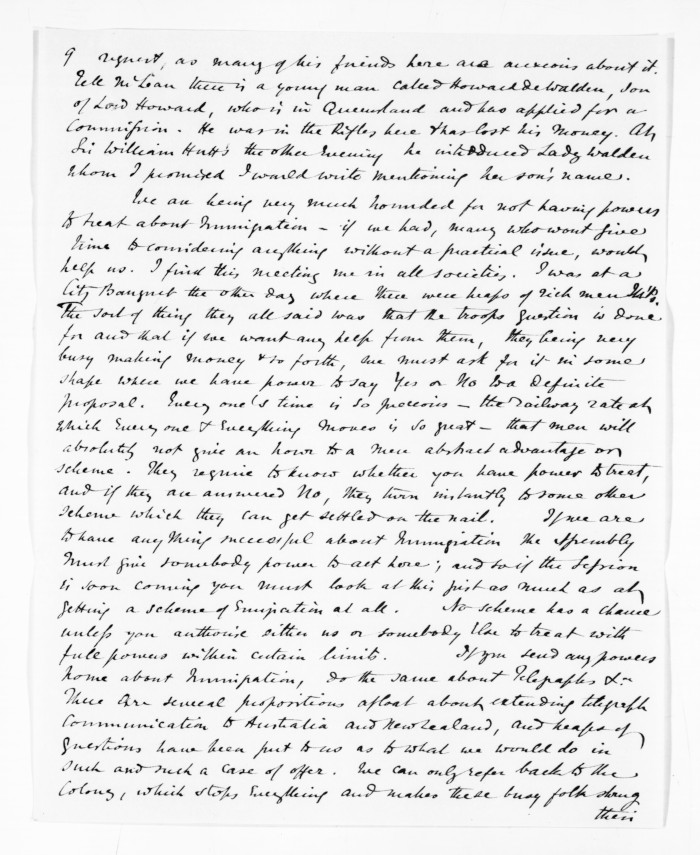 9 request, as many of his friends here are anxious about it.
Tell McLean there is a young man called Howard de Walden, son
of Lord Howard, who is in Queensland and has applied for a
Commission. He was in the Rifles here & has lost his money. At
Sir William Hutt's the other Evening he introduced Lady Walden
whom I promised I would write mentioning her son's name.
We are being very much hounded for not having powers
to treat about Immigration – if we had, many who wont give
time to considering anything without a practical issue, would
help us. I find this meeting me in all societies. I was at a
City Banquet the other day where there were heaps of rich men
The sort of thing they all said was that the troops question is done
for and that if we want any help from them, they being very
busy making money & so forth, we must ask for it in some
shape where we have power to say Yes or No to a definite
proposal. Every one's time is so precious – the railway rate at
which Every one & Everything moves is so great – that men will
absolutely not give an hour to a mere abstract advantage or
scheme. They require to know whether you have power to treat,
and if they are answered No, they turn instantly to some other
scheme which they can get settled on the nail. If we are
to have anything successful about Immigration the Assembly
must give somebody power to act here; and so if the Session
is soon coming you must look at this just as much as at
getting a scheme of Emigration at all. No scheme has a chance
unless you authorise either us or somebody Else to treat with
full powers within certain limits. If you send any powers
home about Immigration, do the same about Telegraphs &c
There are several propositions afloat about extending telegraph
Communication to Australia and New Zealand, and heaps of
questions have been put to us as to what we would do in
such and such a case of offer. We can only refer back to the
Colony, which stops Everything and makes these busy folk shrug
their